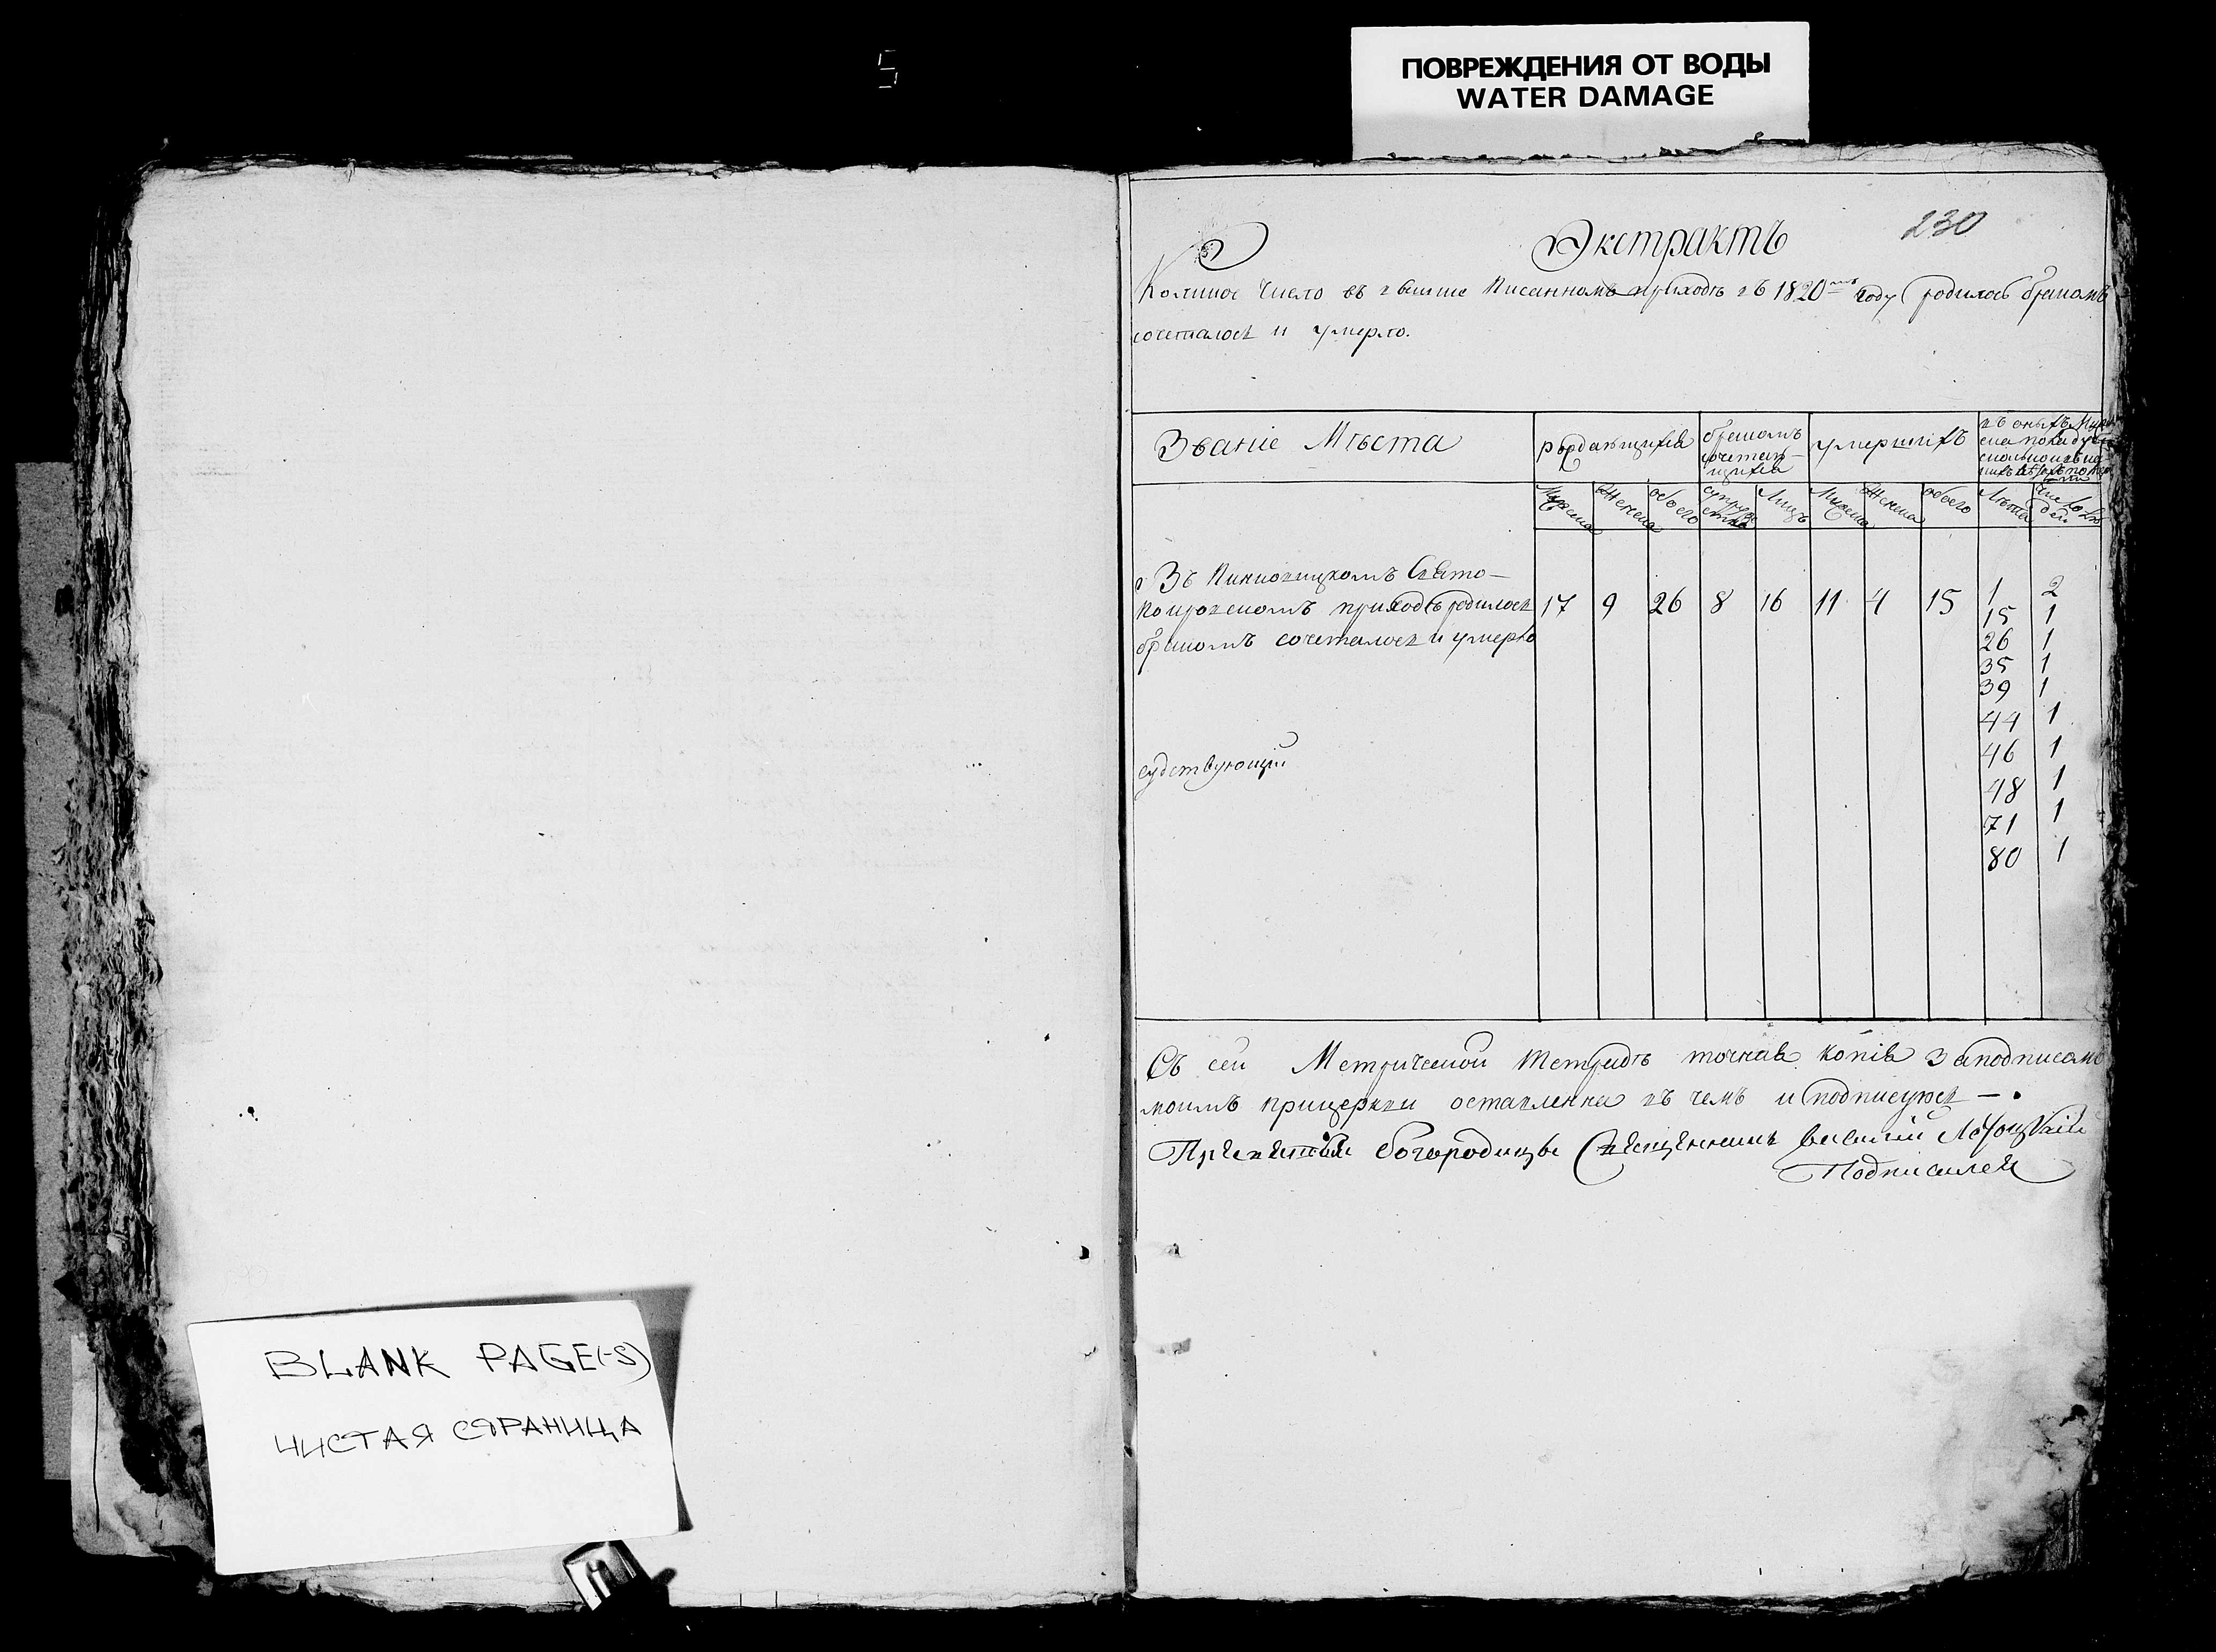 5
ПОВРЕЖДЕНИЯ ОТ ВОДЫ
WATER DAMAGE
230
Экстрактъ
Коликое Число въ вышше писанномъ приходѣ въ 1820мъ году родилось бракомъ
сочеталось и умерло.
Званіе Мѣста
рождающихся
бракомъ сочетающихся
умершихъ
въ оныхъ
Мужеска Женска обоего супружество Лицъ Мужеска Женска обоего Лѣта
Въ Свято-
покровскомъ приходѣ родилось 17 9 26 8 16 11 4 15 1 2
15 1
бракомъ сочеталось и умерло 26 1
35 1
39 1
44 1
46 1
48 1
71 1
80 1
судствующій
Съ сей Метрической тетради точная копія заподписомъ
моимъ прицеркви оставленна въ чемъ и подписуюсь —
Пресвятыя богородицы Священникъ василій
Подписался
BLANK PAGE(-S)
ЧИСТАЯ СТРАНИЦА